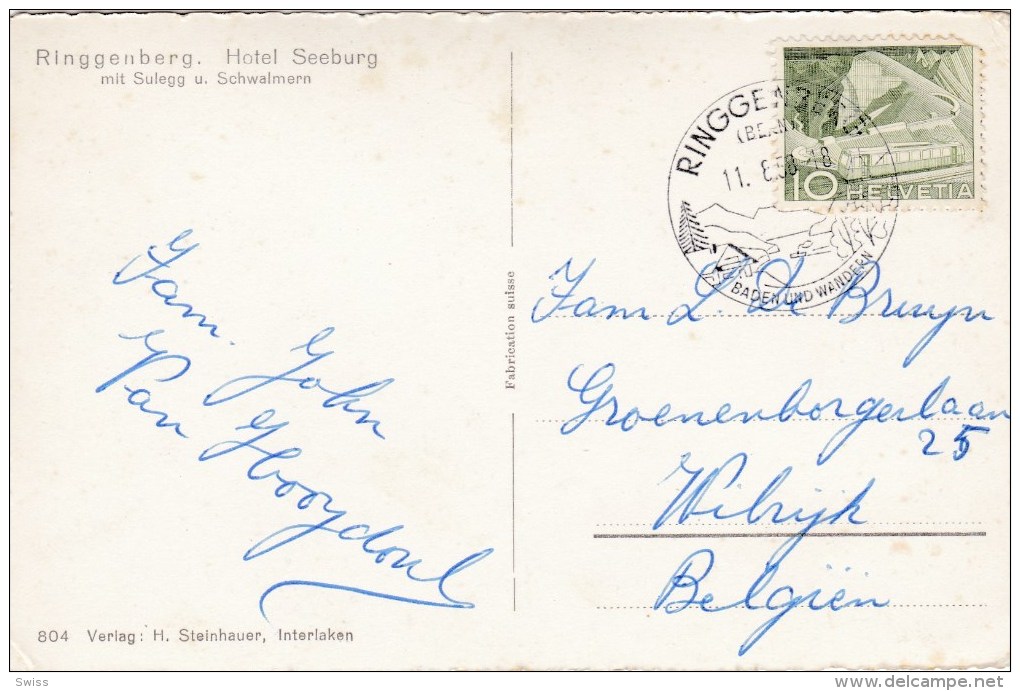 Ringgenberg. Hotel Seeburg
mit Sulegg u. Schwalmern
Fam. John
Van
804 Verlag: H. Steinhauer, Interlaken
Fabrication suisse
10 HELVETIA
RINGGENBERG
(BERN)
11. 8.58-18
BADEN UND WANDERN
Fam L. De Bruyn
Groenenborgerlaan
25
Wilrijk
Belgiën
Swiss
delcampe.net